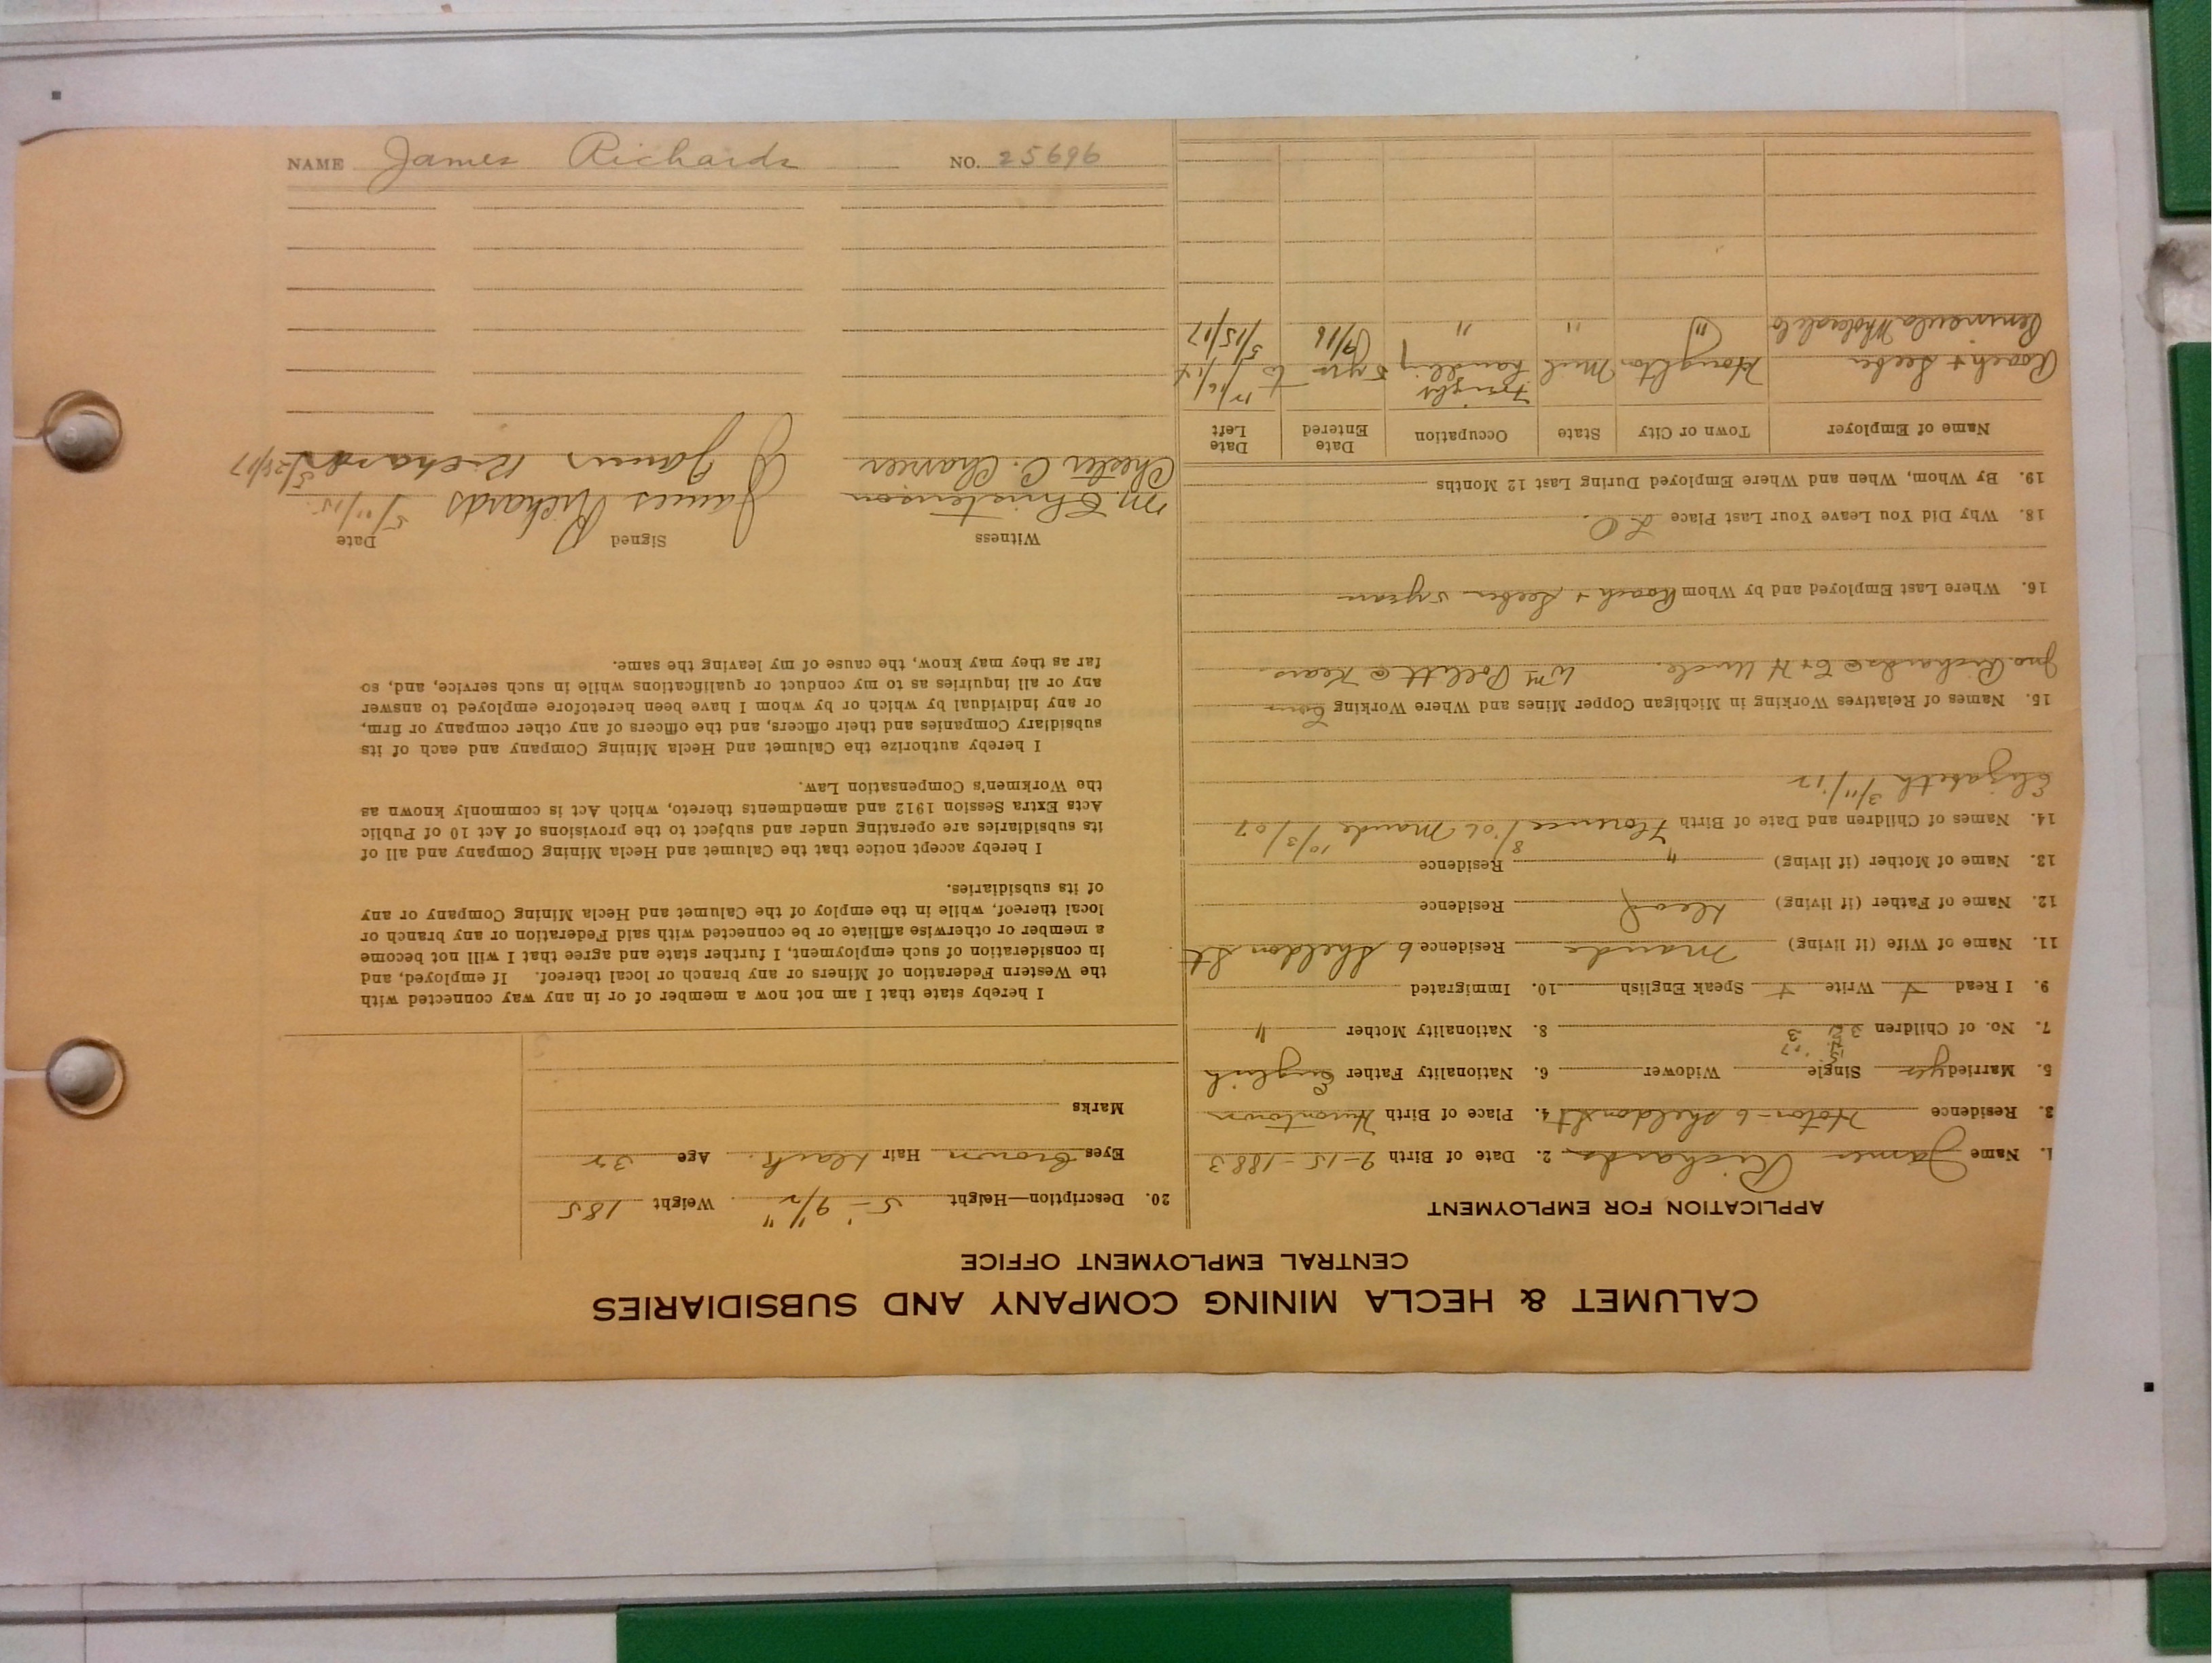 CALUMET & HECLA MINING COMPANY AND SUBSIDIARIES
CENTRAL EMPLOYMENT OFFICE
APPLICATION FOR EMPLOYMENT
1. Name James Richards 2. Date of Birth 9-15-1883
3. Residence Hoton- 6 Sheldon St 4. Place of Birth Hurontown
5. Married yes Single Widower 6. Nationality Father English
7. No. of Children 3 8. Nationality Mother "
9. I Read + Write + Speak English 10. Immigrated
11. Name of Wife (if living) Maude Residence 6 Sheldon St
12. Name of Father (if living) Dead Residence
13. Name of Mother (if living) " Residence
14. Names of Children and Date of Birth Florence 8/ /06 Maude 10/3/07
Elizabeth 3/11/12
15. Names of Relatives Working in Michigan Copper Mines and Where Working
Jno. Richards @ C+H Uncle. Wm @ Kears
16. Where Last Employed and by Whom Roach + Seeber 5 years
18. Why Did You Leave Your Last Place L O.
19. By Whom, When and Where Employed During Last 12 Months
Name of Employer Town or City State Occupation Date Entered Date Left
Roach + Seeber Houghton Mich Freight handling 5 yrs to
Peninsula Wholesale Co " " " 9/16 5/15/17
20. Description—Height 5'-9 1/2" Weight 185
Eyes Brown Hair black. Age 32
Marks
I hereby state that I am not now a member of or in any way connected with
the Western Federation of Miners or any branch or local thereof. If employed, and
in consideration of such employment, I further state and agree that I will not become
a member or otherwise affiliate or be connected with said Federation or any branch or
local thereof, while in the employ of the Calumet and Hecla Mining Company or any
of its subsidiaries.
I hereby accept notice that the Calumet and Hecla Mining Company and all of
its subsidiaries are operating under and subject to the provisions of Act 10 of Public
Acts Extra Session 1912 and amendments thereto, which Act is commonly known as
the Workmen's Compensation Law.
I hereby authorize the Calumet and Hecla Mining Company and each of its
subsidiary Companies and their officers, and the officers of any other company or firm,
or any individual by which or by whom I have been heretofore employed to answer
any or all inquiries as to my conduct or qualifications while in such service, and, so
far as they may know, the cause of my leaving the same.
Witness Signed Date
M. Christenson James Richards 5/11/15.
Chester C. James Richards 5/25/17
NAME James Richards NO. 25696